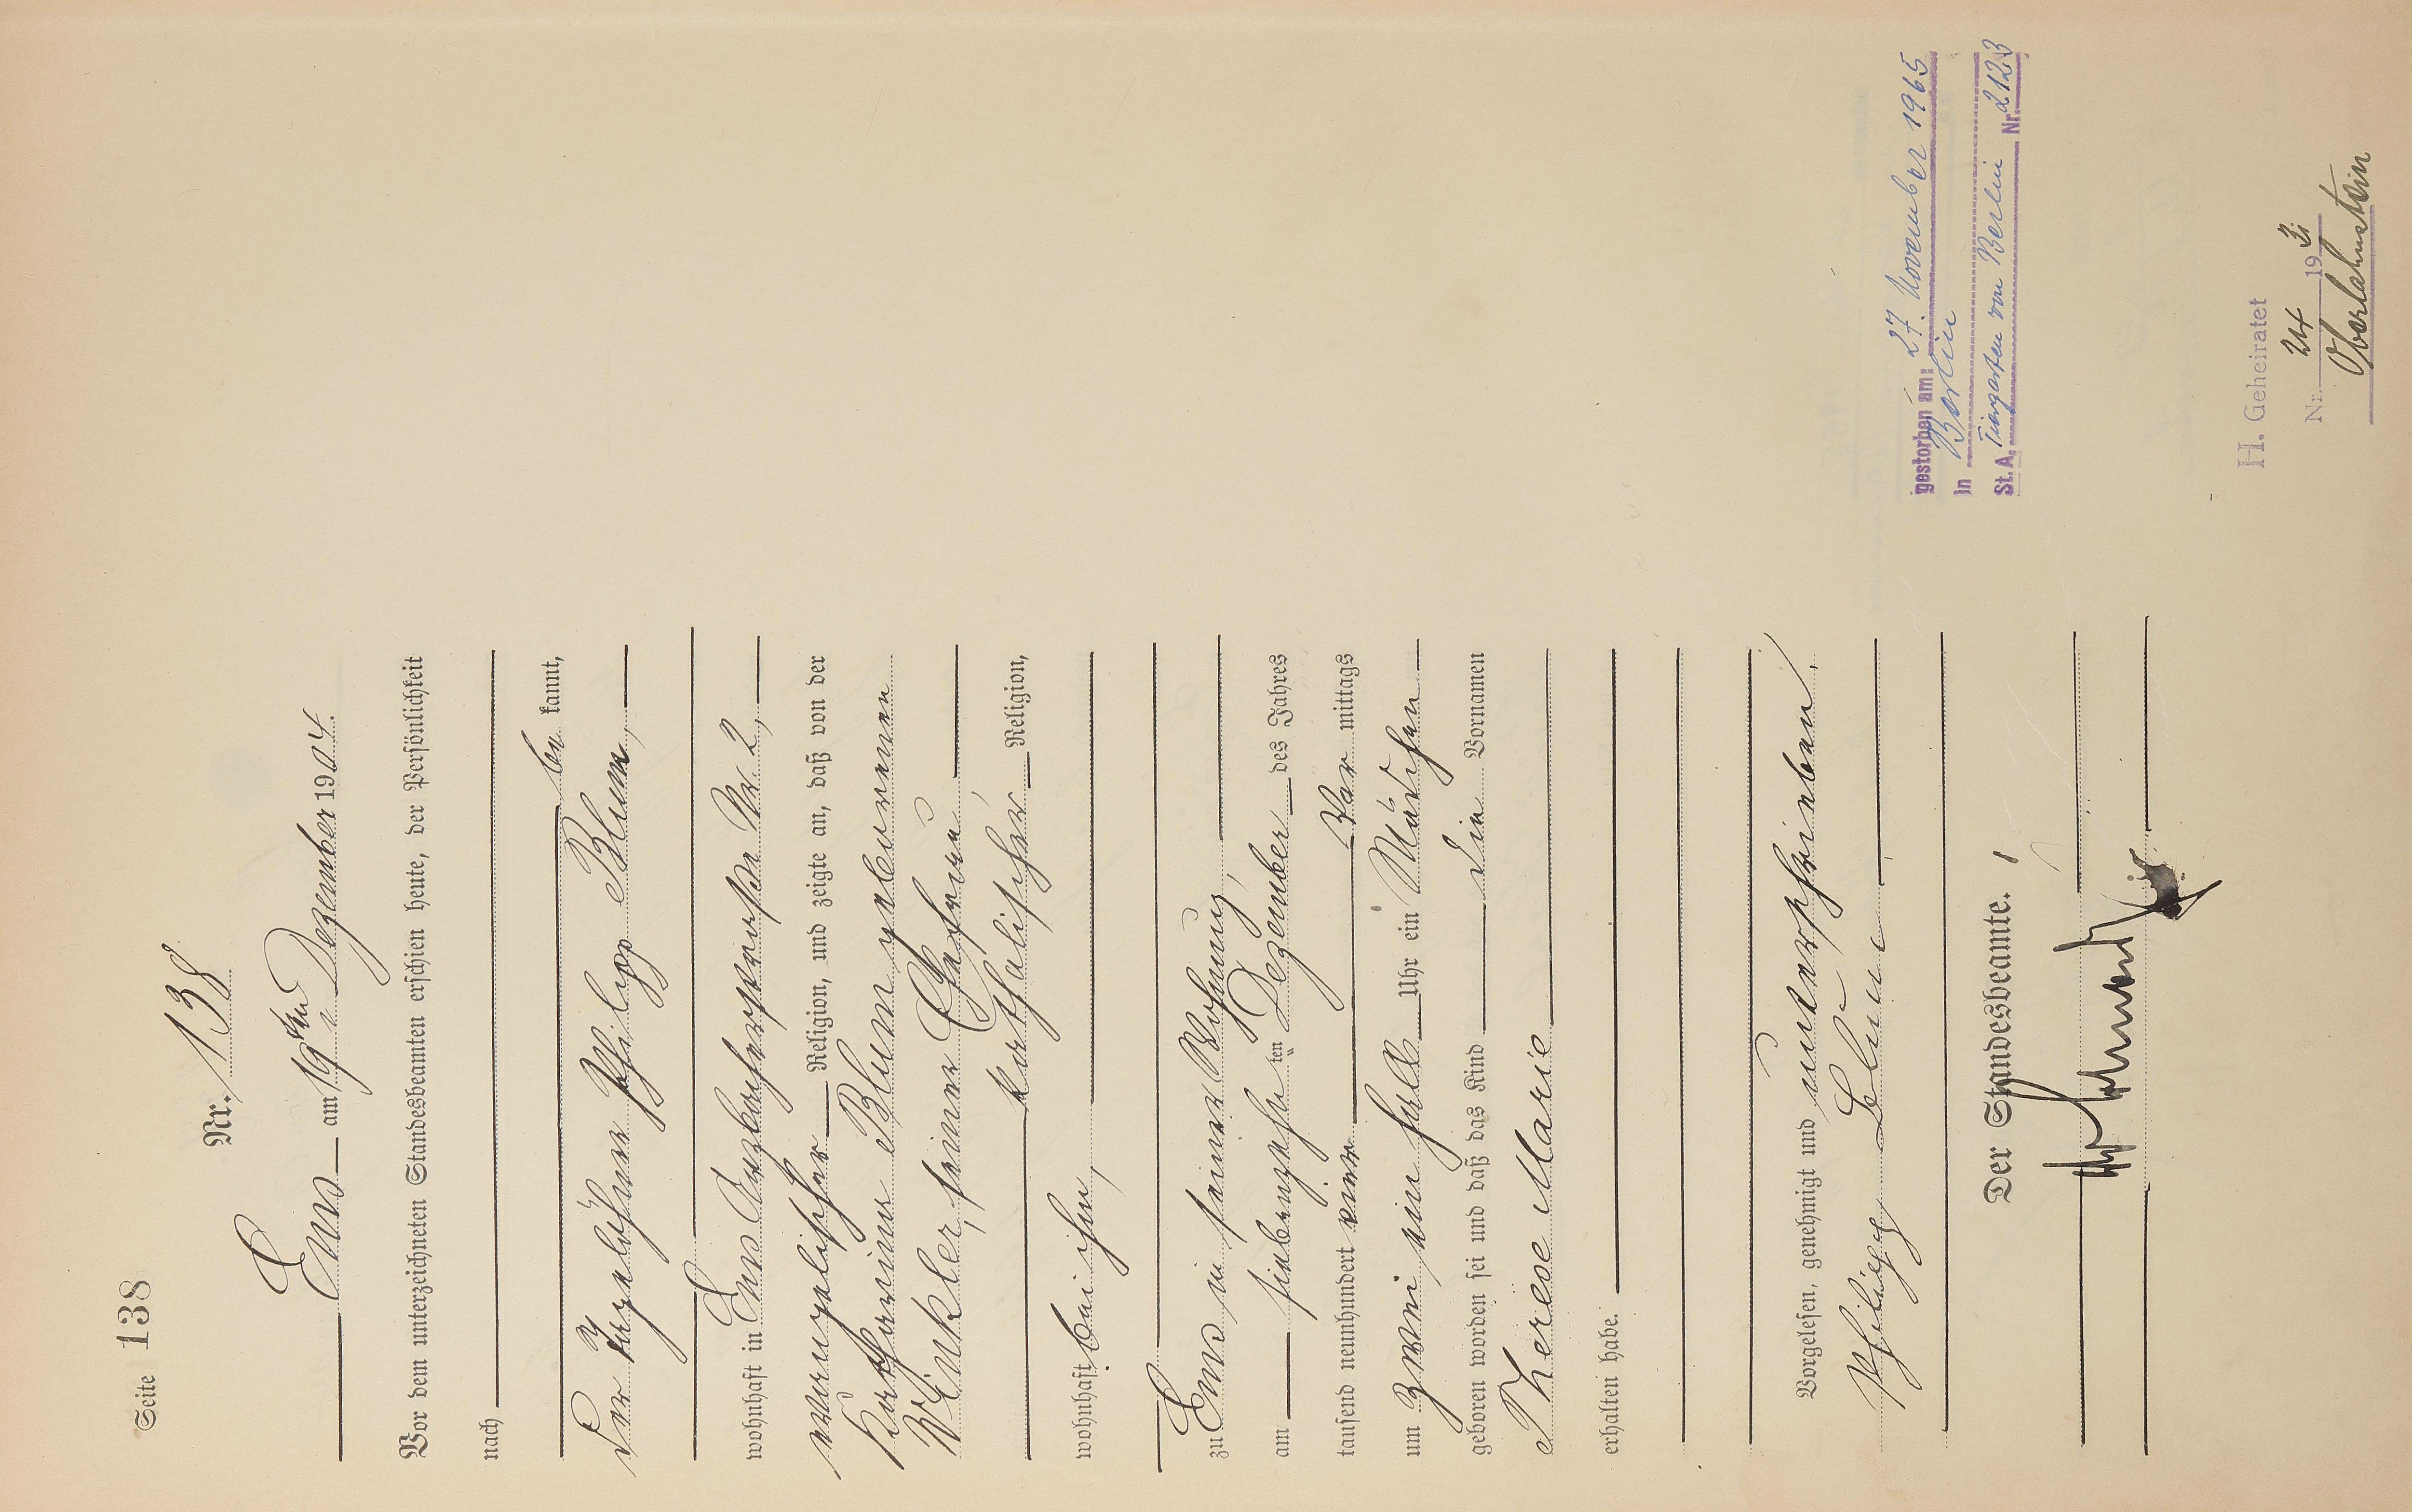 Seite 138
Nr. 138
Ems am 19ten Dezember 1904.
Vor dem unterzeichneten Standesbeamten erschien heute, der Persönlichkeit
nach
be kannt,
der Tagelöhner Philipp Blum,
wohnhaft in Ems Arzbacherstraße Nr. 2,
evangelischer Religion, und zeigte an, daß von der
Katharina Blum geborenen
Winkler, seiner Ehefrau,
katholischer Religion,
wohnhaft bei ihm,
zu Ems in seiner Wohnung,
am siebenzehnten Dezember des Jahres
tausend neunhundert vier Vor mittags
um zwei ein halb Uhr ein Mädchen
geboren worden sei und daß das Kind die Vornamen
Therese Marie
erhalten habe.
Vorgelesen, genehmigt und unterschrieben.
Philipp Blum
Der Standesbeamte.
gestorben am: 27. November 1965
in Berlin
St. A. Tiergarten von Berlin Nr. 2123
H. Geheiratet
Nr. 24 1931
Oberlahnstein